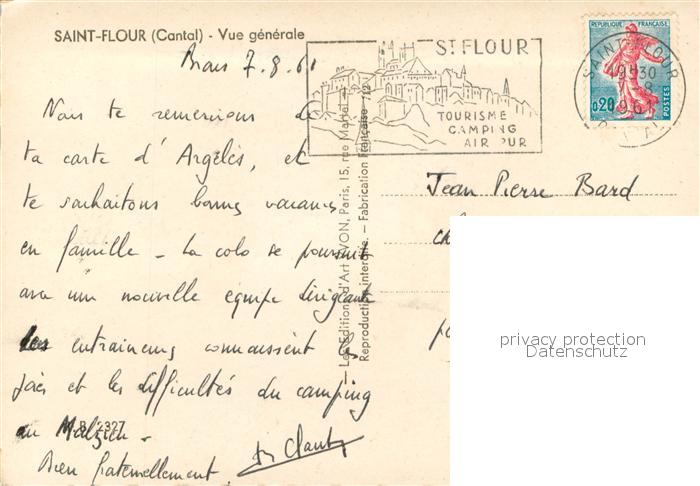 SAINT-FLOUR (Cantal) - Vue générale
7.8.61
Nous te remercions de
ta carte d'Argelès, et
te souhaitons bonnes vacances
en famille - La colo se poursuit
avec une nouvelle équipe dirigeante
les entraineurs connaissent les
joies et les difficultés du camping
au Malzieu.
Bien fraternellement
B. 2327
Les Editions d'Art YVON, Paris, 15, rue Martel
Reproduction interdite. - Fabrication Française
ST FLOUR
TOURISME
CAMPING
AIR PUR
REPUBLIQUE FRANÇAISE
0,20
POSTES
SAINT-FLOUR
CANTAL
Jean Pierre Bard
privacy protection
Datenschutz